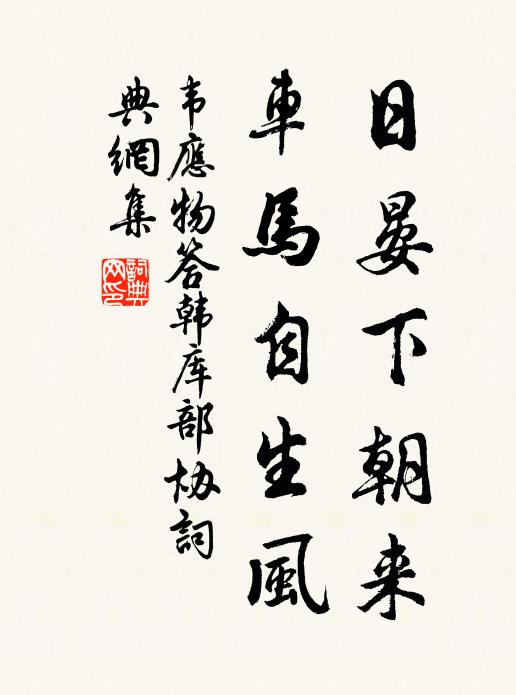 日晏下朝来
車馬自生風
韦應物答韩库部协詞
典網集
詞典
网印